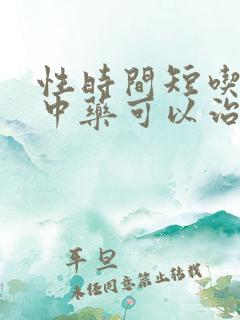 性時間短喫
中藥可以治
平旦
未經同意禁止轉載